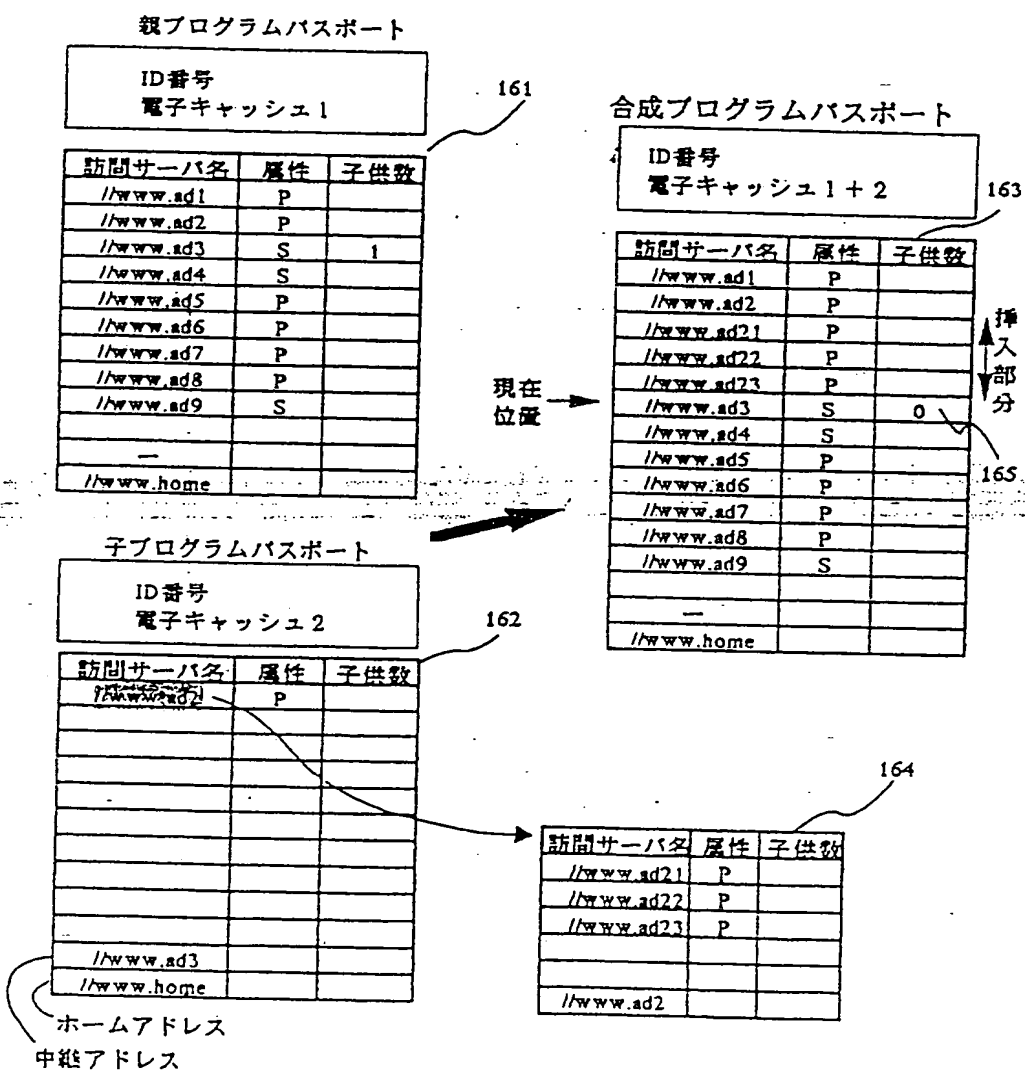 親プログラムパスポート
ID番号
電子キャッシュ1
161
訪問サーバ名 属性 子供数
//www.ad1 P
//www.ad2 P
//www.ad3 S 1
//www.ad4 S
//www.ad5 P
//www.ad6 P
//www.ad7 P
//www.ad8 P
//www.ad9 S
—
//www.home
子プログラムパスポート
ID番号
電子キャッシュ2
162
訪問サーバ名 属性 子供数
//www.ad2 P
//www.ad3
//www.home
ホームアドレス
中継アドレス
合成プログラムパスポート
ID番号
電子キャッシュ1+2
163
訪問サーバ名 属性 子供数
//www.ad1 P
//www.ad2 P
//www.ad21 P
//www.ad22 P
//www.ad23 P
//www.ad3 S 0
//www.ad4 S
//www.ad5 P
//www.ad6 P
//www.ad7 P
//www.ad8 P
//www.ad9 S
—
//www.home
挿入部分
165
現在
位置
164
訪問サーバ名 属性 子供数
//www.ad21 P
//www.ad22 P
//www.ad23 P
//www.ad2